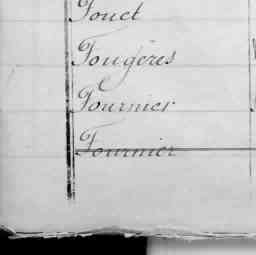 Fouet
Fougères
Fournier
Fournier